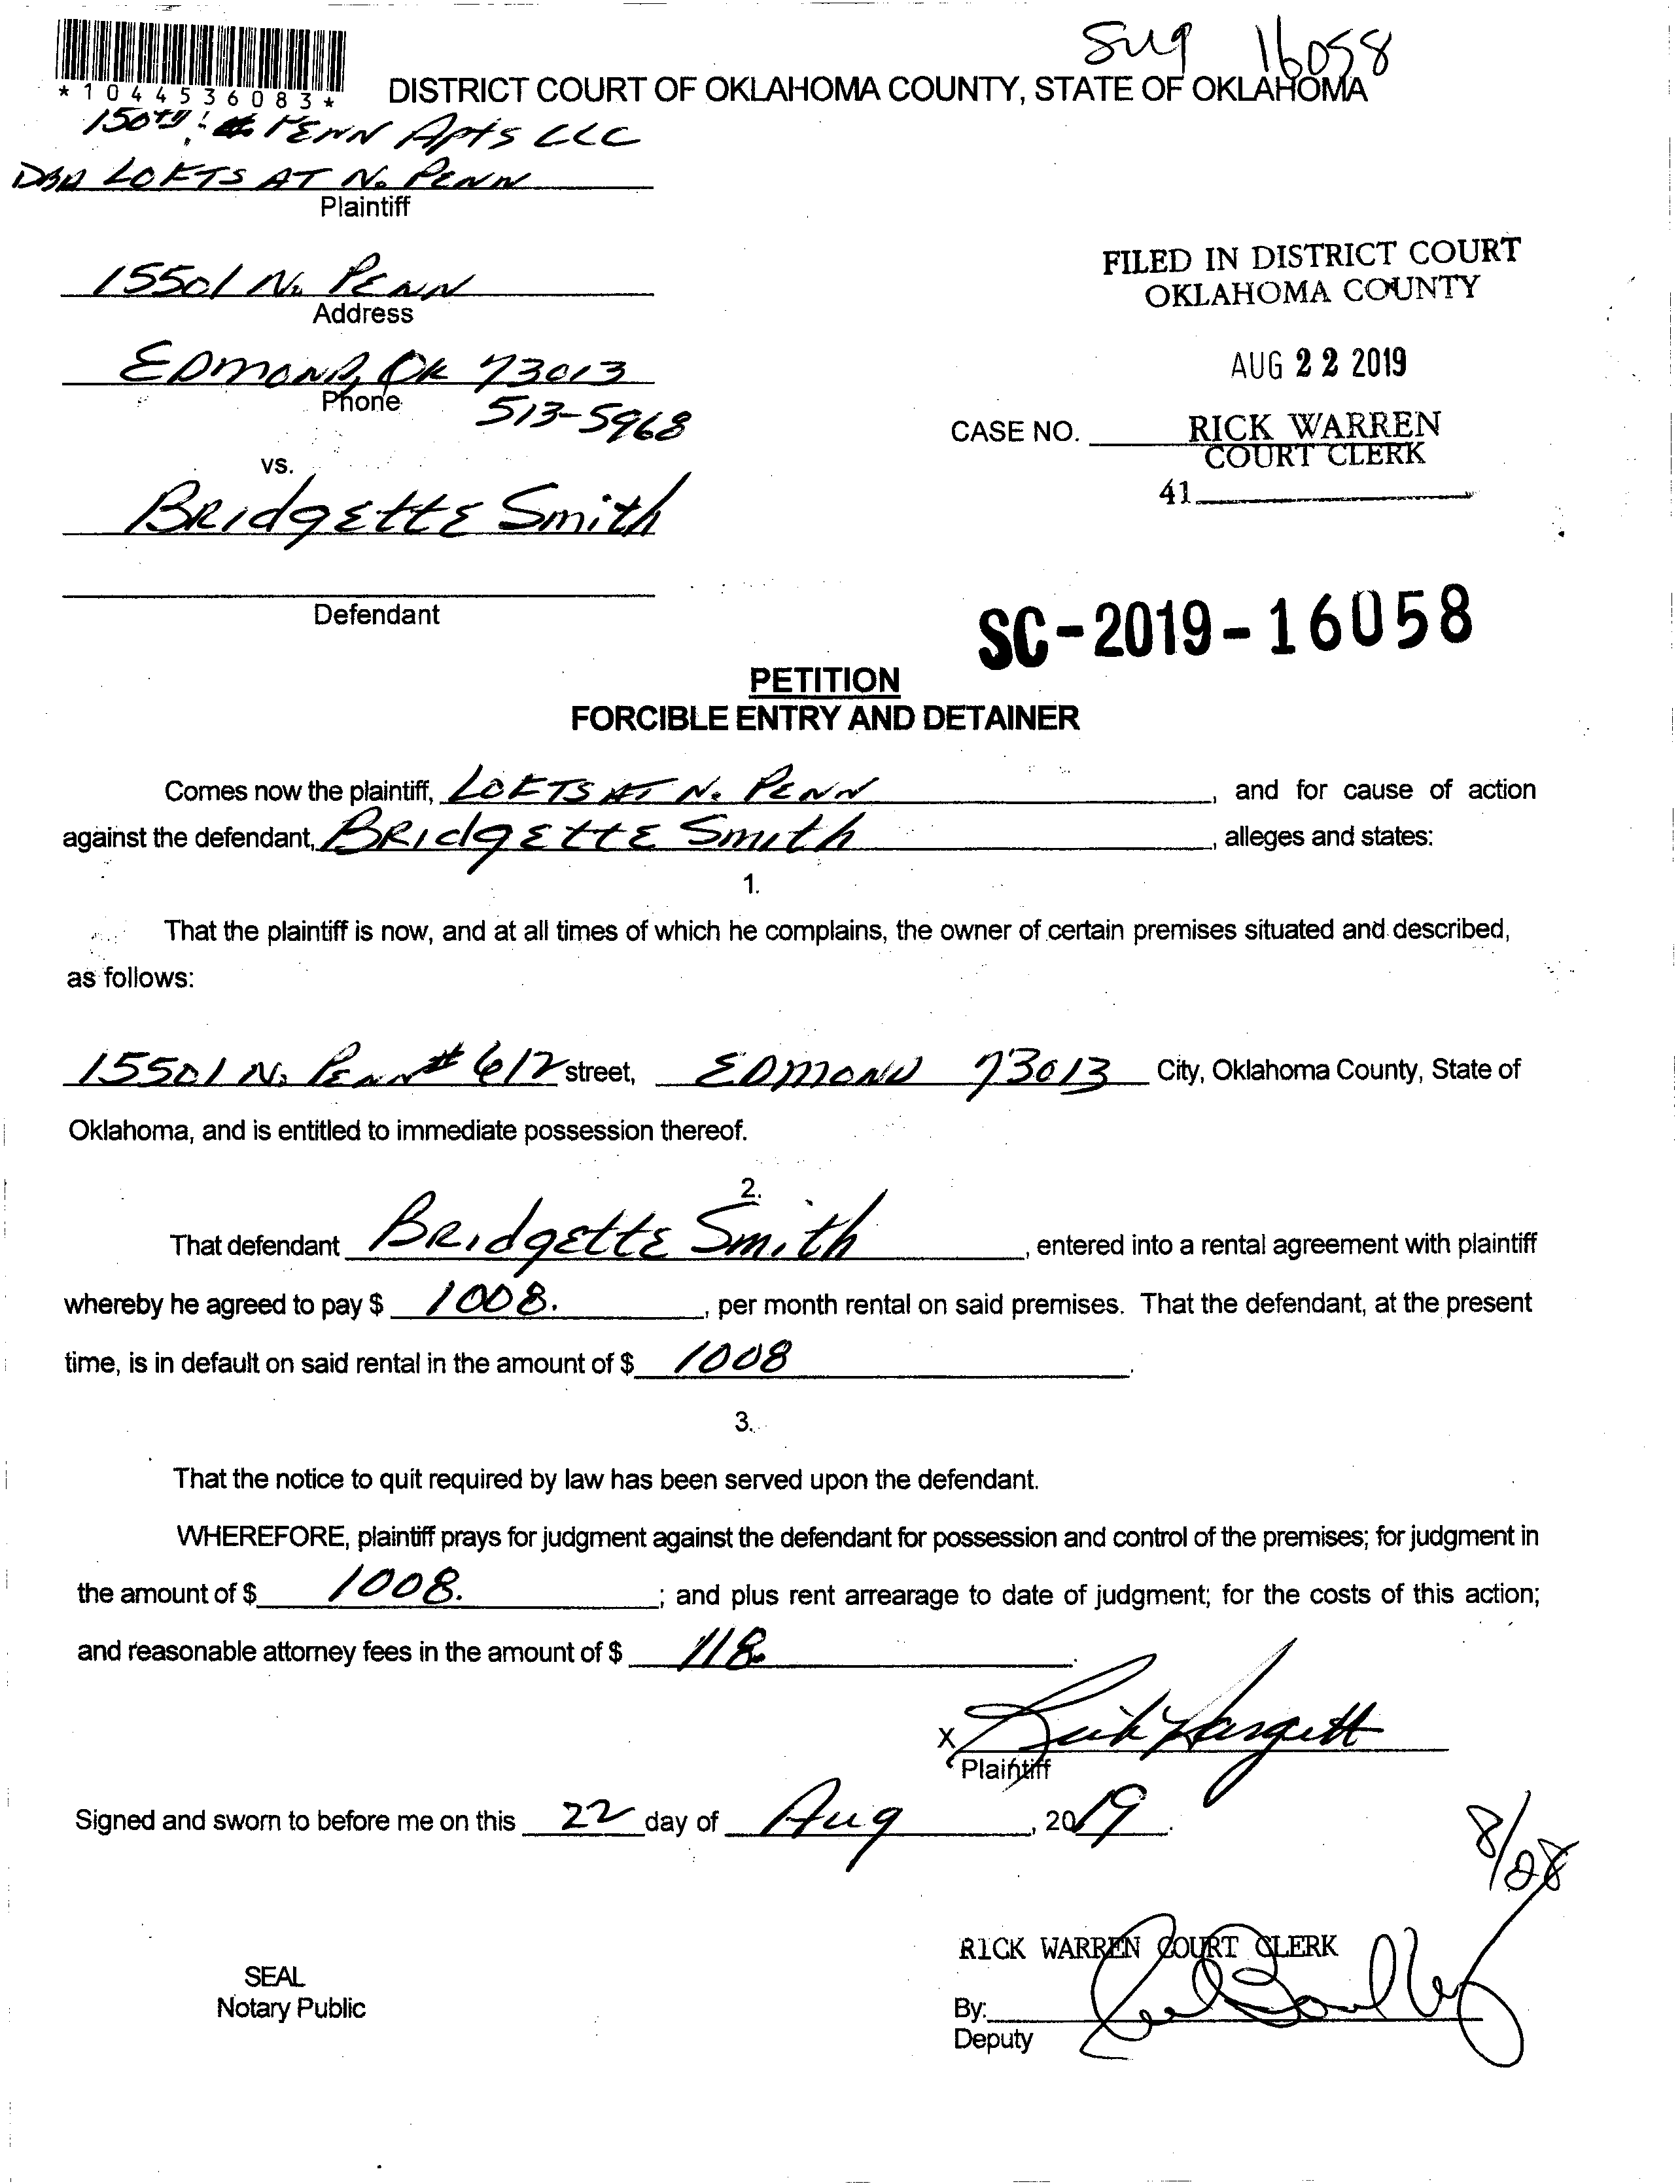 Sug 16058
*1044536083*
DISTRICT COURT OF OKLAHOMA COUNTY, STATE OF OKLAHOMA
150th PENN Apts LLC
DBA LOFTS AT N. PENN
Plaintiff
15501 N. PENN
Address
EDMOND, OK 73013
Phone
513-5968
FILED IN DISTRICT COURT
OKLAHOMA COUNTY
AUG 22 2019
CASE NO. RICK WARREN
COURT CLERK
41
vs.
BRidgEttE Smith
Defendant
SC-2019-16058
PETITION
FORCIBLE ENTRY AND DETAINER
Comes now the plaintiff, LOFTS AT N. PENN, and for cause of action
against the defendant, BRidgEttE Smith, alleges and states:
1.
That the plaintiff is now, and at all times of which he complains, the owner of certain premises situated and described,
as follows:
15501 N. Penn # 612 street, EDMOND 73013 City, Oklahoma County, State of
Oklahoma, and is entitled to immediate possession thereof.
2.
That defendant BRidgEttE Smith, entered into a rental agreement with plaintiff
whereby he agreed to pay $ 1008., per month rental on said premises. That the defendant, at the present
time, is in default on said rental in the amount of $ 1008.
3.
That the notice to quit required by law has been served upon the defendant.
WHEREFORE, plaintiff prays for judgment against the defendant for possession and control of the premises; for judgment in
the amount of $ 1008. ; and plus rent arrearage to date of judgment; for the costs of this action;
and reasonable attorney fees in the amount of $ 118.
X
Plaintiff
Signed and sworn to before me on this 22 day of Aug, 2019.
8/28
RICK WARREN COURT CLERK
SEAL
Notary Public
By:
Deputy